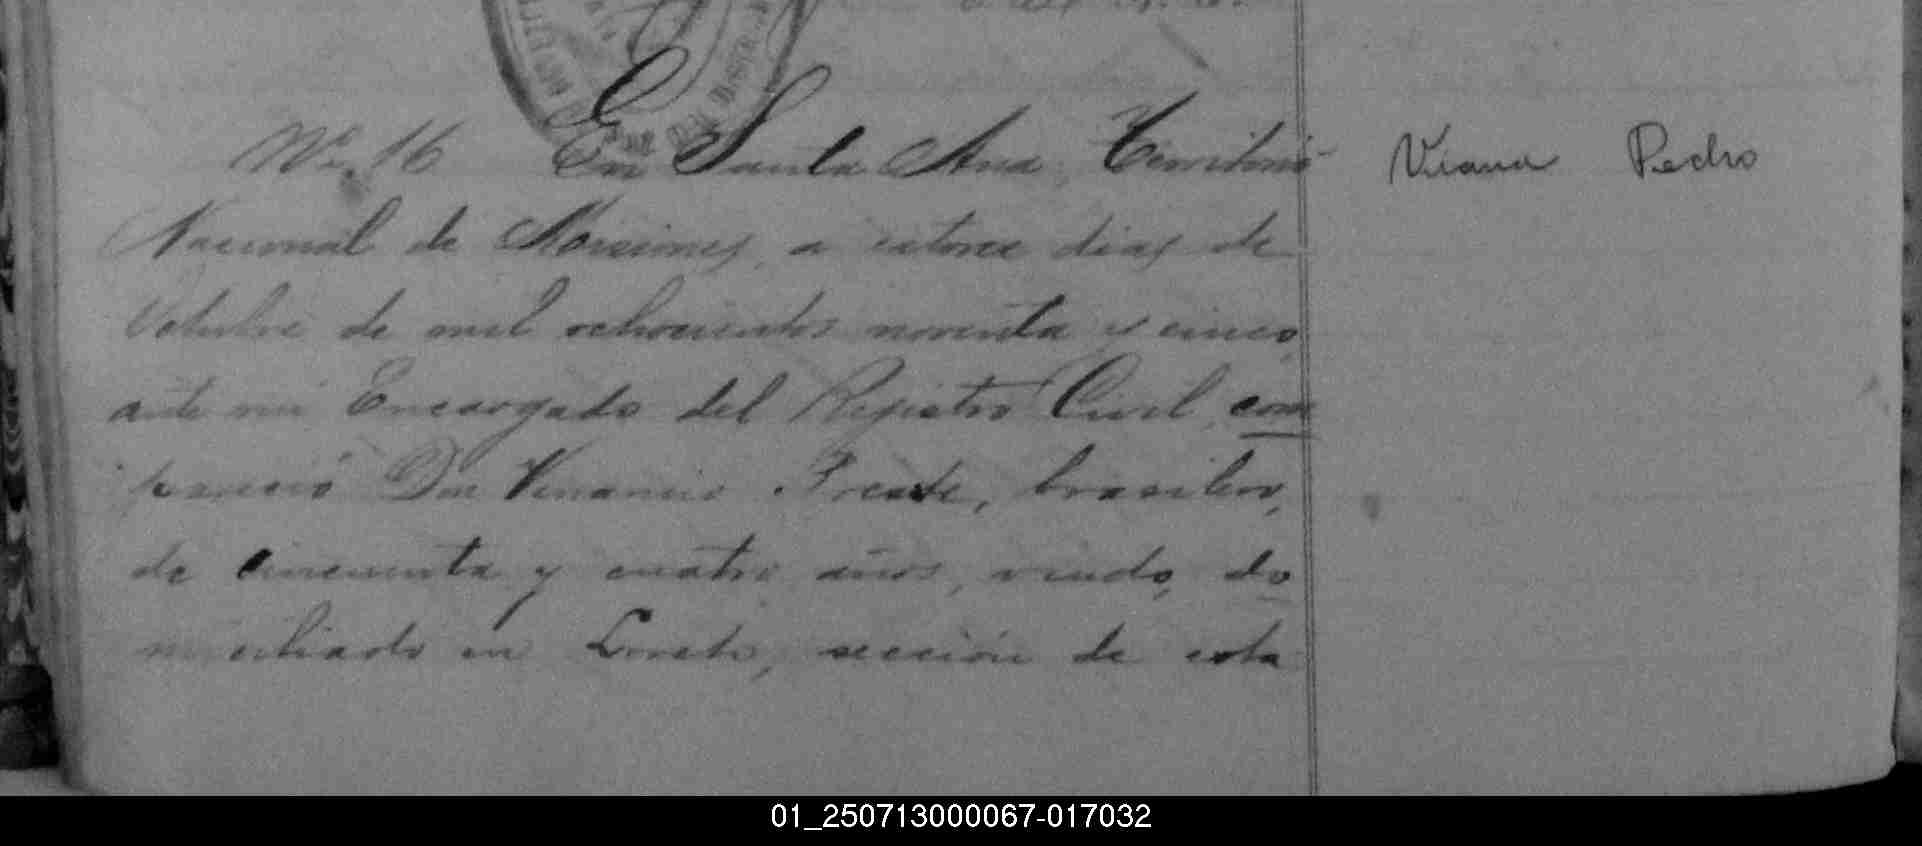 Nº 16 En Santa Ana, Territorio
Viana Pedro
Nacional de Misiones, a catorce dias de
Octubre de mil ochocientos noventa y cinco,
ante mi Encargado del Registro Civil, com
pareció Don Venancio, brasilero,
de cincuenta y cuatro años, viudo, do
miciliado en Loreto, sección de esta
01_250713000067-017032